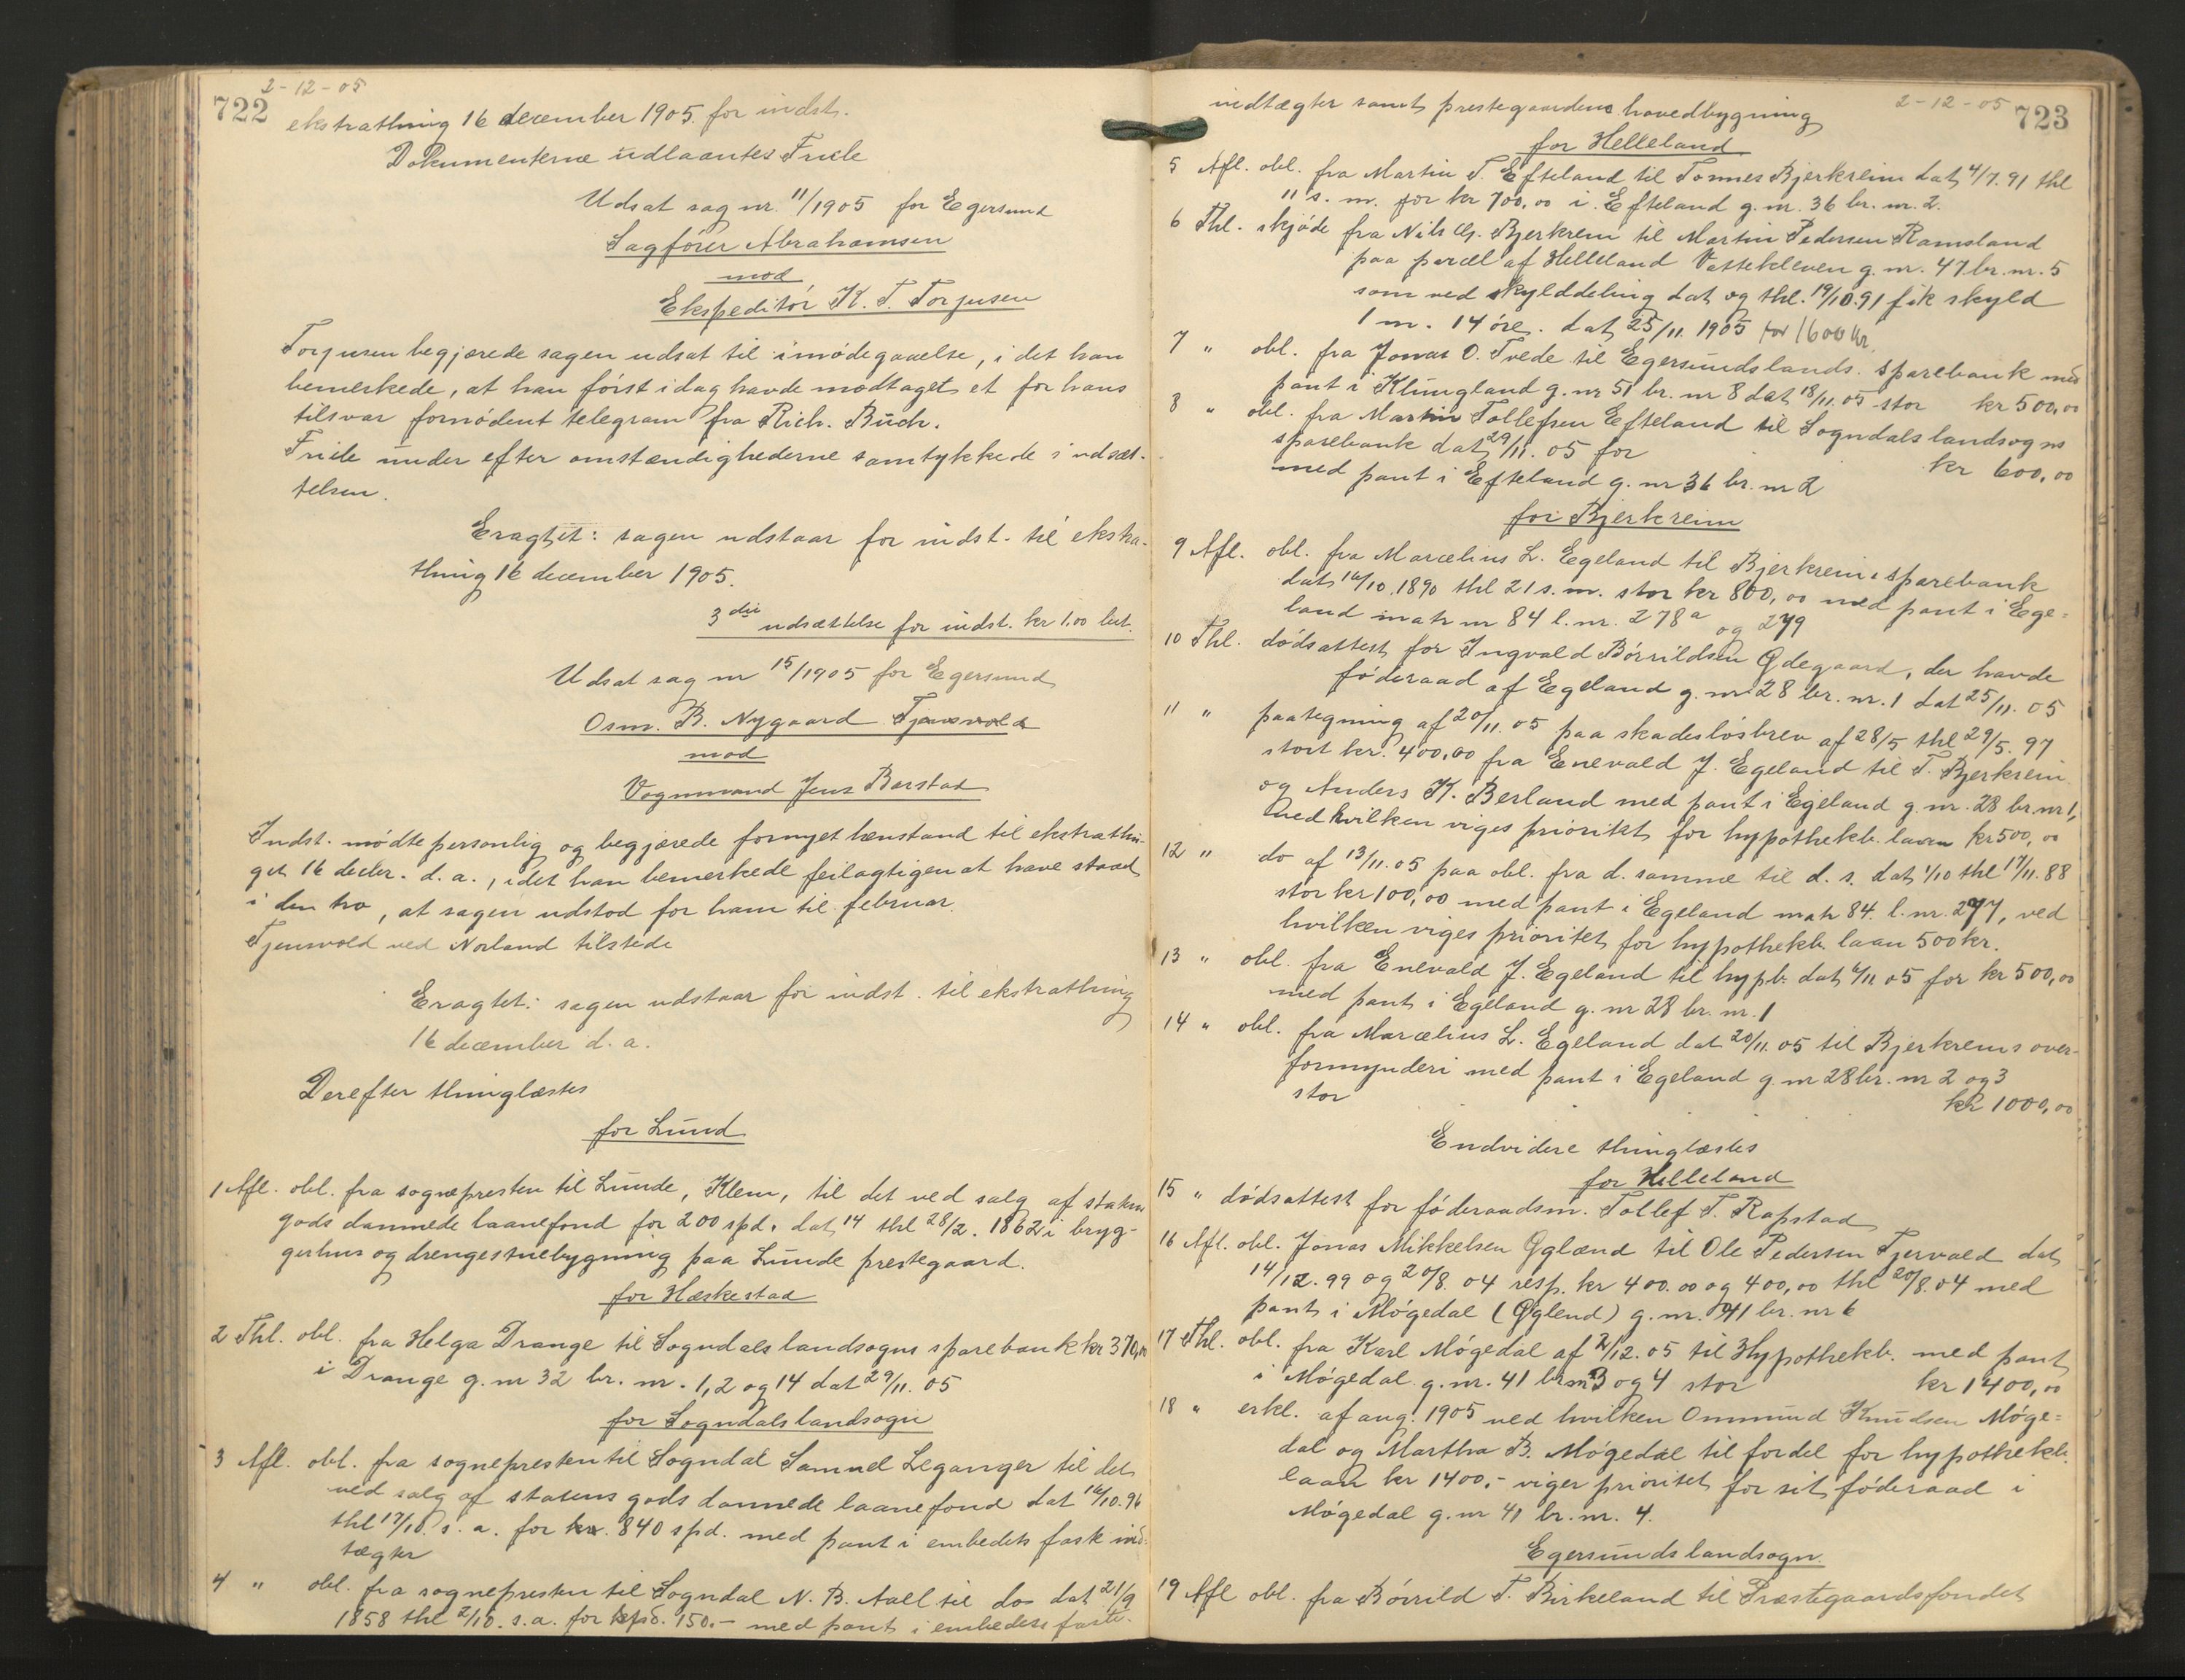 2-12-05
722
ekstrathing 16 december 1905. for indst.
Dokumenterne udlaantes Friele
Udsat sag nr. 11/1905 for Egersund
Sagfører Abrahamsen
mod
Ekspeditør K. T. Torjusen
Torjusen begjærede sagen udsat til imødegaaelse, i det han
bemerkede, at han først idag havde modtaget et for hans
tilsvar fornødent telegram fra Rich. Buch.
Friele under efter omstændighederne samtykkede i udsæt-
telsen.
Eragtet: sagen udstaar for indst. til ekstra-
thing 16 december 1905.
3die udsættelse for indst. kr 1.00 bet.
Udsat sag nr 15/1905 for Egersund
Osm. B. Nygaard Tjensvold
mod
Vognmand Jens Barstad
Indst. mødte personlig og begjærede fornyet henstand til ekstrathin-
get 16 decbr. d. a., idet han bemerkede feilagtigen at have staaet
i den tro, at sagen udstod for ham til februar.
Tjensvold ved Norland tilstede
Eragtet: sagen udstaar for indst. til ekstrathing
16 december d. a.
Derefter thinglæstes
for Lund
1 Afl. obl. fra sognepresten til Lunde, Klem, til det ved salg af statens
gods dannede laanefond for 200 spd. dat 14 thl 28/2. 1862 i bryg-
gerhus og drengestuebygning paa Lunde prestegaard.
for Heskestad
2 Thl. obl. fra Helga Drange til Sogndals landsogns sparebank kr 370,00
i Drange g. nr 32 br. nr. 1, 2 og 14 dat 29/11. 05
for Sogndals landsogn
3 Afl. obl. fra sognepresten til Sogndal Samuel Leganger til det
ved salg af statens gods dannede laanefond dat 16/10.96
thl 17/10. s. a. for 840 spd. med pant i embedets fask ind-
tægter
4 " obl. fra sognepresten til Sogndal N. B. Aall til do dat 21/9
1858 thl 2/10. s. a. for spd. 150.- med pant i embedets faste
2-12-05
723
indtægter samt prestegaardens hovedbygning
for Helleland
5 Afl. obl. fra Martin T. Efteland til Tønnes Bjerkreim dat 4/7. 91 thl
11 s. m. for kr 700,00 i Efteland g. nr. 36 br. nr. 2.
6 Thl. skjøde fra Nils Bjerkrem til Martin Pedersen Ramsland
paa parcel af Helleland Vattekleven g. nr. 47 br. nr. 5
som ved skylddeling dat og thl. 19/10.91 fik skyld
1 m. 14 øre. dat 25/11. 1905 for 1600 kr.
7 " obl. fra Jonas O. Tvede til Egersunds lands. sparebank med
pant i Klungland g. nr 51 br. nr 8 dat 18/11.05 stor kr 500,00
8 " obl. fra Martin Tollefsen Efteland til Sogndals landsogns
sparebank dat 29/11. 05 for kr 600,00
med pant i Efteland g. nr 36 br. nr 2
for Bjerkreim
9 Afl. obl. fra Marcelius L. Egeland til Bjerkreims sparebank
dat 16/10. 1890 thl 21 s. m. stor kr 800,00 med pant i Ege=
land matr nr 84 l. nr. 278a og 279
10 Thl. dødsattest for Ingvald Børrildsen Ødegaard, der havde
føderaad af Egeland g. nr 28 br. nr. 1 dat 25/11. 05
11 " paategning af 20/11. 05 paa skadesløsbrev af 28/5 thl 29/5. 97
stort kr. 400,00 fra Enevald J. Egeland til T. Bjerkreim
og Anders K. Berland med pant i Egeland g. nr. 28 br. nr 1,
ved hvilken viges prioritet for hypothekb. laan kr 500,00
12 " do af 13/11. 05 paa obl. fra d. samme til d. s. dat 1/10 thl 17/11. 88
stor kr 100,00 med pant i Egeland matr 84. l. nr. 277, ved
hvilken viges prioritet for hypothekb. laan 500 kr.
13 " obl. fra Enevald J. Egeland til hypb. dat 6/11 05 for kr 500,00
med pant i Egeland g. nr 28 br. nr. 1
14 " obl. fra Marcelius L. Egeland dat 20/11. 05 til Bjerkrems over-
formynderi med pant i Egeland g nr 28 br. nr 2 og 3
stor kr 1000,00
Endvidere thinglæstes
for Helleland
15 " dødsattest for føderaadsm. Tollef T. Rapstad
16 Afl. obl. Jonas Mikkelsen Øglænd til Ole Pedersen Tjervald dat
14/12. 99 og 20/8. 04 resp. kr 400.00 og 400,00 thl 20/8. 04 med
pant i Møgedal (Øglend) g. nr. 41 br. nr 6
17 Thl. obl. fra Karl Møgedal af 2/12. 05 til Hypothekb. med pant
i Møgedal g. nr. 41 br nr 3 og 4 stor kr 1400,00
18 " erkl. af aug. 1905 ved hvilken Ommund Knudsen Møge=
dal og Martha B. Møgedal til fordel for hypothekb.
laan kr 1400.- viger prioritet for sit føderaad i
Møgedal g. nr 41 br. nr. 4.
Egersunds landsogn
19 Afl obl. fra Børrild T. Birkeland til Præstegaardsfondet